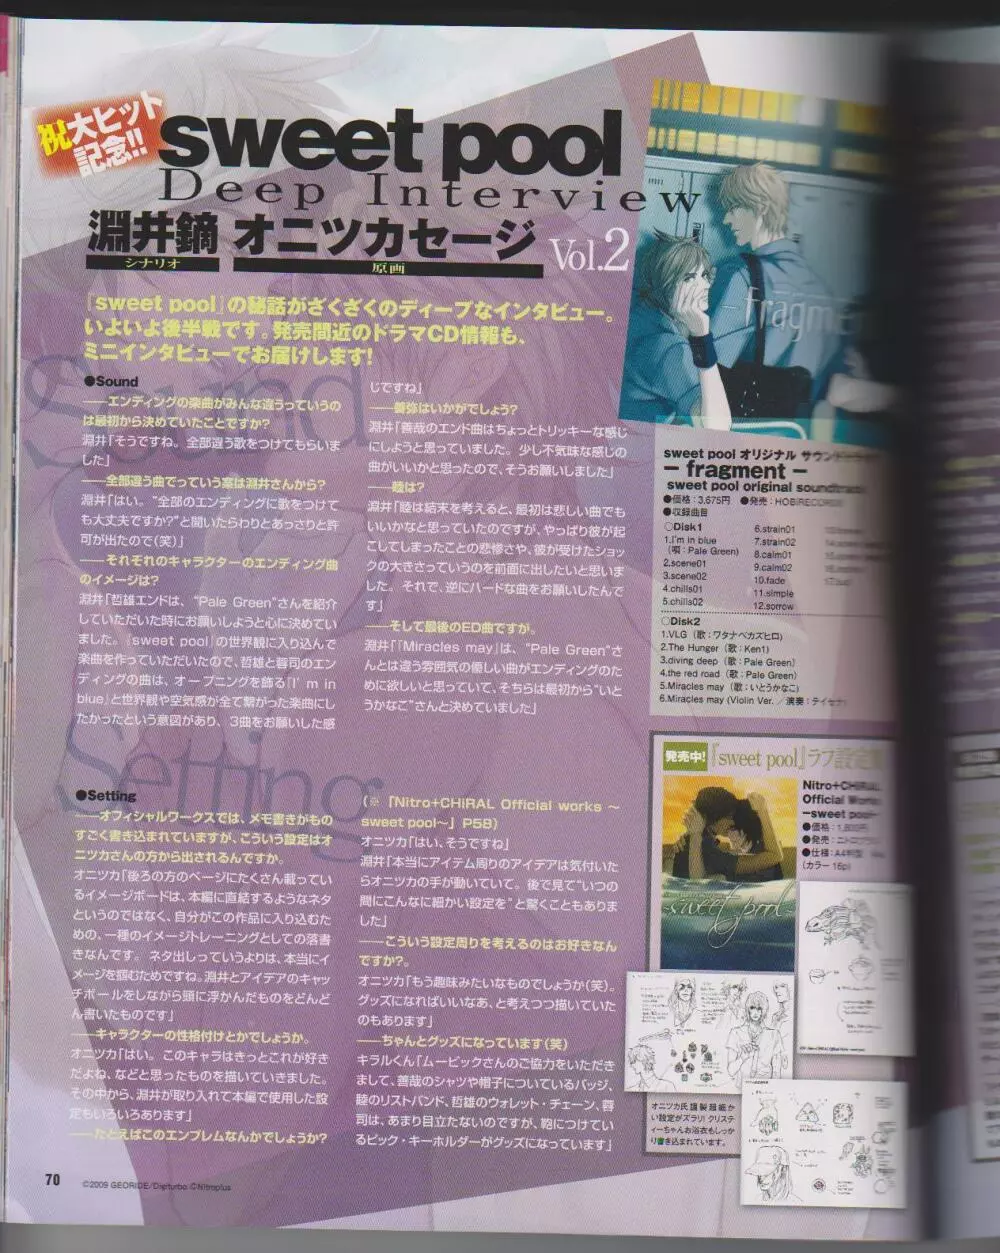 祝大ヒット
記念!!
sweet pool
Deep Interview
淵井鏑 オニツカセージ
シナリオ
原画
Vol.2
『sweet pool』の秘話がざくざくのディープなインタビュー。
いよいよ後半戦です。発売間近のドラマCD情報も、
ミニインタビューでお届けします!
●Sound
――エンディングの楽曲がみんな違うっていうの
は最初から決めていたことですか?
淵井「そうですね。全部違う歌をつけてもらいま
した」
――全部違う曲でっていう案は淵井さんから?
淵井「はい。“全部のエンディングに歌をつけて
も大丈夫ですか?”と聞いたらわりとあっさりと許
可が出たので(笑)」
――それぞれのキャラクターのエンディング曲
のイメージは?
淵井「哲雄エンドは、“Pale Green”さんを紹介
していただいた時にお願いしようと心に決めてい
ました。『sweet pool』の世界観に入り込んで
楽曲を作っていただいたので、哲雄と蓉司のエン
ディングの曲は、オープニングを飾る『I'm in
blue』と世界観や空気感が全て繋がった楽曲にし
たかったという意図があり、3曲をお願いした感
じですね」
――善弥はいかがでしょう?
淵井「善哉のエンド曲はちょっとトリッキーな感じ
にしようと思っていました。少し不気味な感じの
曲がいいかと思ったので、そうお願いしました」
――睦は?
淵井「睦は結末を考えると、最初は悲しい曲でも
いいかなと思っていたのですが、やっぱり彼が起
こしてしまったことの悲惨さや、彼が受けたショッ
クの大きさっていうのを前面に出したいと思いま
した。それで、逆にハードな曲をお願いしたんで
す」
――そして最後のED曲ですが。
淵井「『Miracles may』は、“Pale Green”さ
んとは違う雰囲気の優しい曲がエンディングのた
めに欲しいと思っていて、そちらは最初から“いと
うかなこ”さんと決めていました」
●Setting
――オフィシャルワークスでは、メモ書きがもの
すごく書き込まれていますが、こういう設定はオ
ニツカさんの方から出されるんですか。
オニツカ「後ろの方のページにたくさん載ってい
るイメージボードは、本編に直結するようなネタ
というのではなく、自分がこの作品に入り込むた
めの、一種のイメージトレーニングとしての落書
きなんです。ネタ出しっていうよりは、本当にイ
メージを掴むためですね。淵井とアイデアのキャッ
チボールをしながら頭に浮かんだものをどんど
ん書いたものです」
――キャラクターの性格付けとかでしょうか。
オニツカ「はい。このキャラはきっとこれが好き
だよね、などと思ったものを描いていきました。
その中から、淵井が取り入れて本編で使用した設
定もいろいろあります」
――たとえばこのエンブレムなんかでしょうか?
(※『Nitro+CHiRAL Official works ～
sweet pool～』P58)
オニツカ「はい、そうですね」
淵井「本当にアイテム周りのアイデアは気付いた
らオニツカの手が動いていて。後で見て“いつの
間にこんなに細かい設定を”と驚くこともありま
した」
――こういう設定周りを考えるのはお好きなん
ですか?。
オニツカ「もう趣味みたいなものでしょうか(笑)。
グッズになればいいなあ、と考えつつ描いていた
のもあります」
――ちゃんとグッズになっています(笑)
キラルくん「ムービックさんのご協力をいただき
まして、善哉のシャツや帽子についているバッジ、
睦のリストバンド、哲雄のウォレット・チェーン、蓉
司は、あまり目立たないのですが、鞄につけてい
るピック・キーホルダーがグッズになっています」
fragme
sweet pool オリジナル サウンドトラック
− fragment −
sweet pool original soundtrack
●価格:3,675円 ●発売:HOBiRECORDS
●収録曲目
○Disk1
1.I'm in blue
(唄:Pale Green)
2.scene01
3.scene02
4.chills01
5.chills02
6.strain01
7.strain02
8.calm01
9.calm02
10.fade
11.simple
12.sorrow
○Disk2
1.VLG(歌:ワタナベカズヒロ)
2.The Hunger(歌:Ken1)
3.diving deep(歌:Pale Green)
4.the red road(歌:Pale Green)
5.Miracles may(歌:いとうかなこ)
6.Miracles may (Violin Ver. /演奏:テイセナ)
発売中! 『sweet pool』ラフ設定集
Nitro+CHiRAL
Official Works
−sweet pool−
●価格:1,800円
●発売:ニトロプラス
●仕様:A4判型
(カラー 16p)
sweet pool
オニツカ氏謹製超細か
い設定がズラリ! クリスティ
ーちゃんお浴衣もしっか
り書き込まれています。
70
©2009 GEORIDE/Digiturbo ©Nitroplus